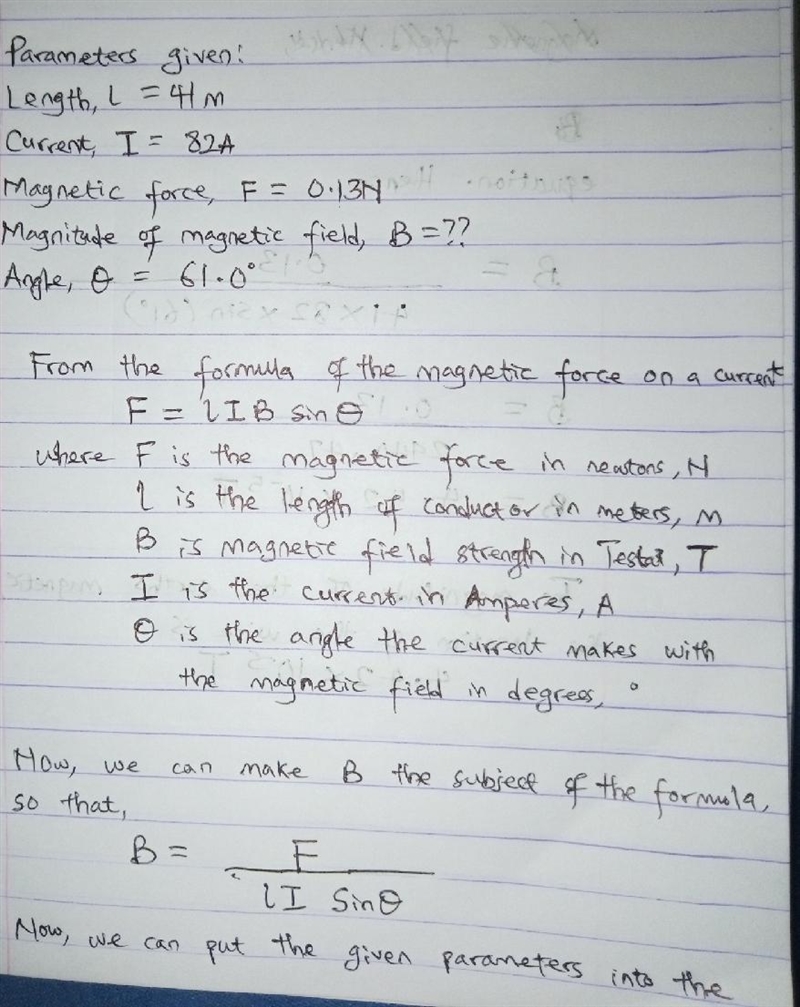 Parameters given:
Length, l = 41m
Current, I = 82A
Magnetic force, F = 0.13N
Magnitude of magnetic field, B =??
Angle, θ = 61.0°
From the formula of the magnetic force on a current
F = lIB sinθ
where F is the magnetic force in newtons, N
l is the length of conductor in meters, m
B is magnetic field strength in Teslar, T
I is the current in Amperes, A
θ is the angle the current makes with
the magnetic field in degrees, °
Now, we can make B the subject of the formula,
so that,
B = F
lI Sinθ
Now, we can put the given parameters into the